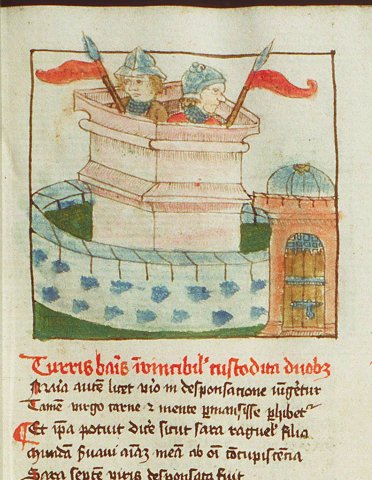 Turris baris invincibil' custodita duobz
Maria autem licet viro in desponsacione iungeretur
Tamen virgo carne & mente permansisse perhibetur
Et ipa potuit dice sicut sara raguel' filia
munda servavi aiam meam ab on concupiscencia
Sara septem viris desponsata fuit